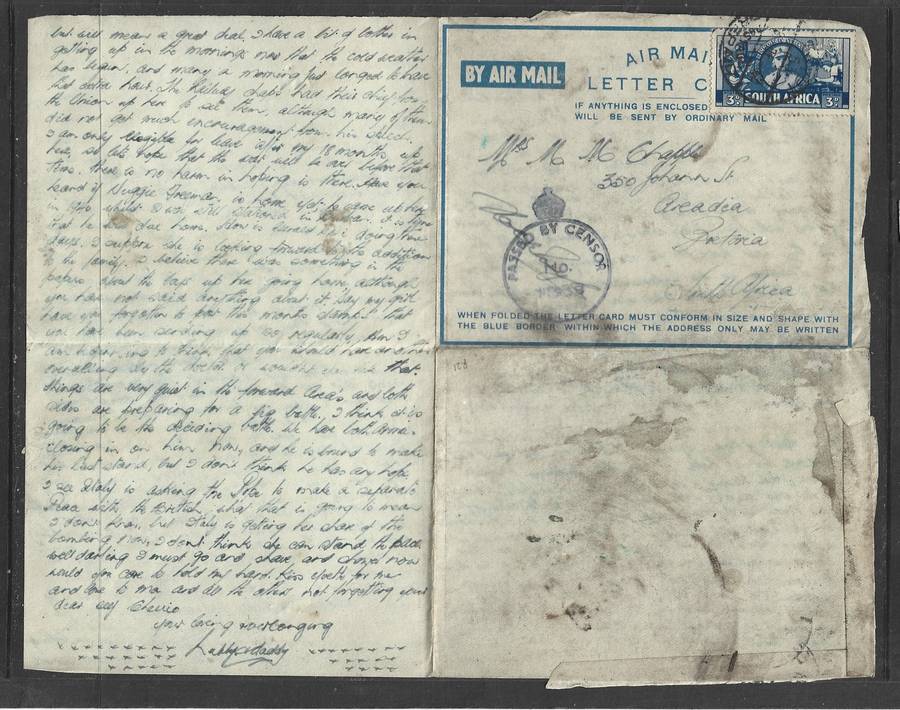 but will mean a great deal, I have a bit of bother in
getting up in the mornings now that the cold weather
has begun, and many a morning just longed to have
that extra hour. The Railway chaps had their chief from
the Union up here to see them, although many of them
did not get much encouragement from his speech.
I am only eligible for leave after my 18 months up
here, so lets hope that the war will be over before that
time, there is no harm in hoping is there. Have you
heard if Freeman is home yet he came up here
in 1940 whilst I was still stationed in
that he was due home. How is doing these
days, I suppose she is looking forward to the addition
to the family. I believe there was something in the
papers about the chaps up here going home, although
you have not said anything about it. Say my girl
have you forgotten to post this months that
you have been sending up so regularly, Mm I
am beginning to think that you would have another
by the doctor
things are very quiet in the forward Area's and both
sides are preparing for a big battle, I think it is
going to be the deciding battle. We have both Armies
closing in on him now, and he is bound to make
his last stand, but I don't think he has any hope
I see Italy is asking the Pope to make a separate
Peace with the British, what that is going to mean
I don't know, but Italy is getting her share of the
bombing now, I don't think she can stand the pace.
well darling I must go and shave, and now
would you care to hold my hand. Kiss for me
and love to ma and all the others not forgetting your
dear self Cheerio
your loving everlonging
Hubby & daddy
BY AIR MAIL
AIR MAI
LETTER C
IF ANYTHING IS ENCLOSED
WILL BE SENT BY ORDINARY MAIL
3D SOUTH AFRICA 3D
Mrs M. M. Chapple
350 Johann St
Arcadia
Pretoria
South Africa
PASSED BY CENSOR
No.
WHEN FOLDED THE LETTER CARD MUST CONFORM IN SIZE AND SHAPE WITH
THE BLUE BORDER WITHIN WHICH THE ADDRESS ONLY MAY BE WRITTEN